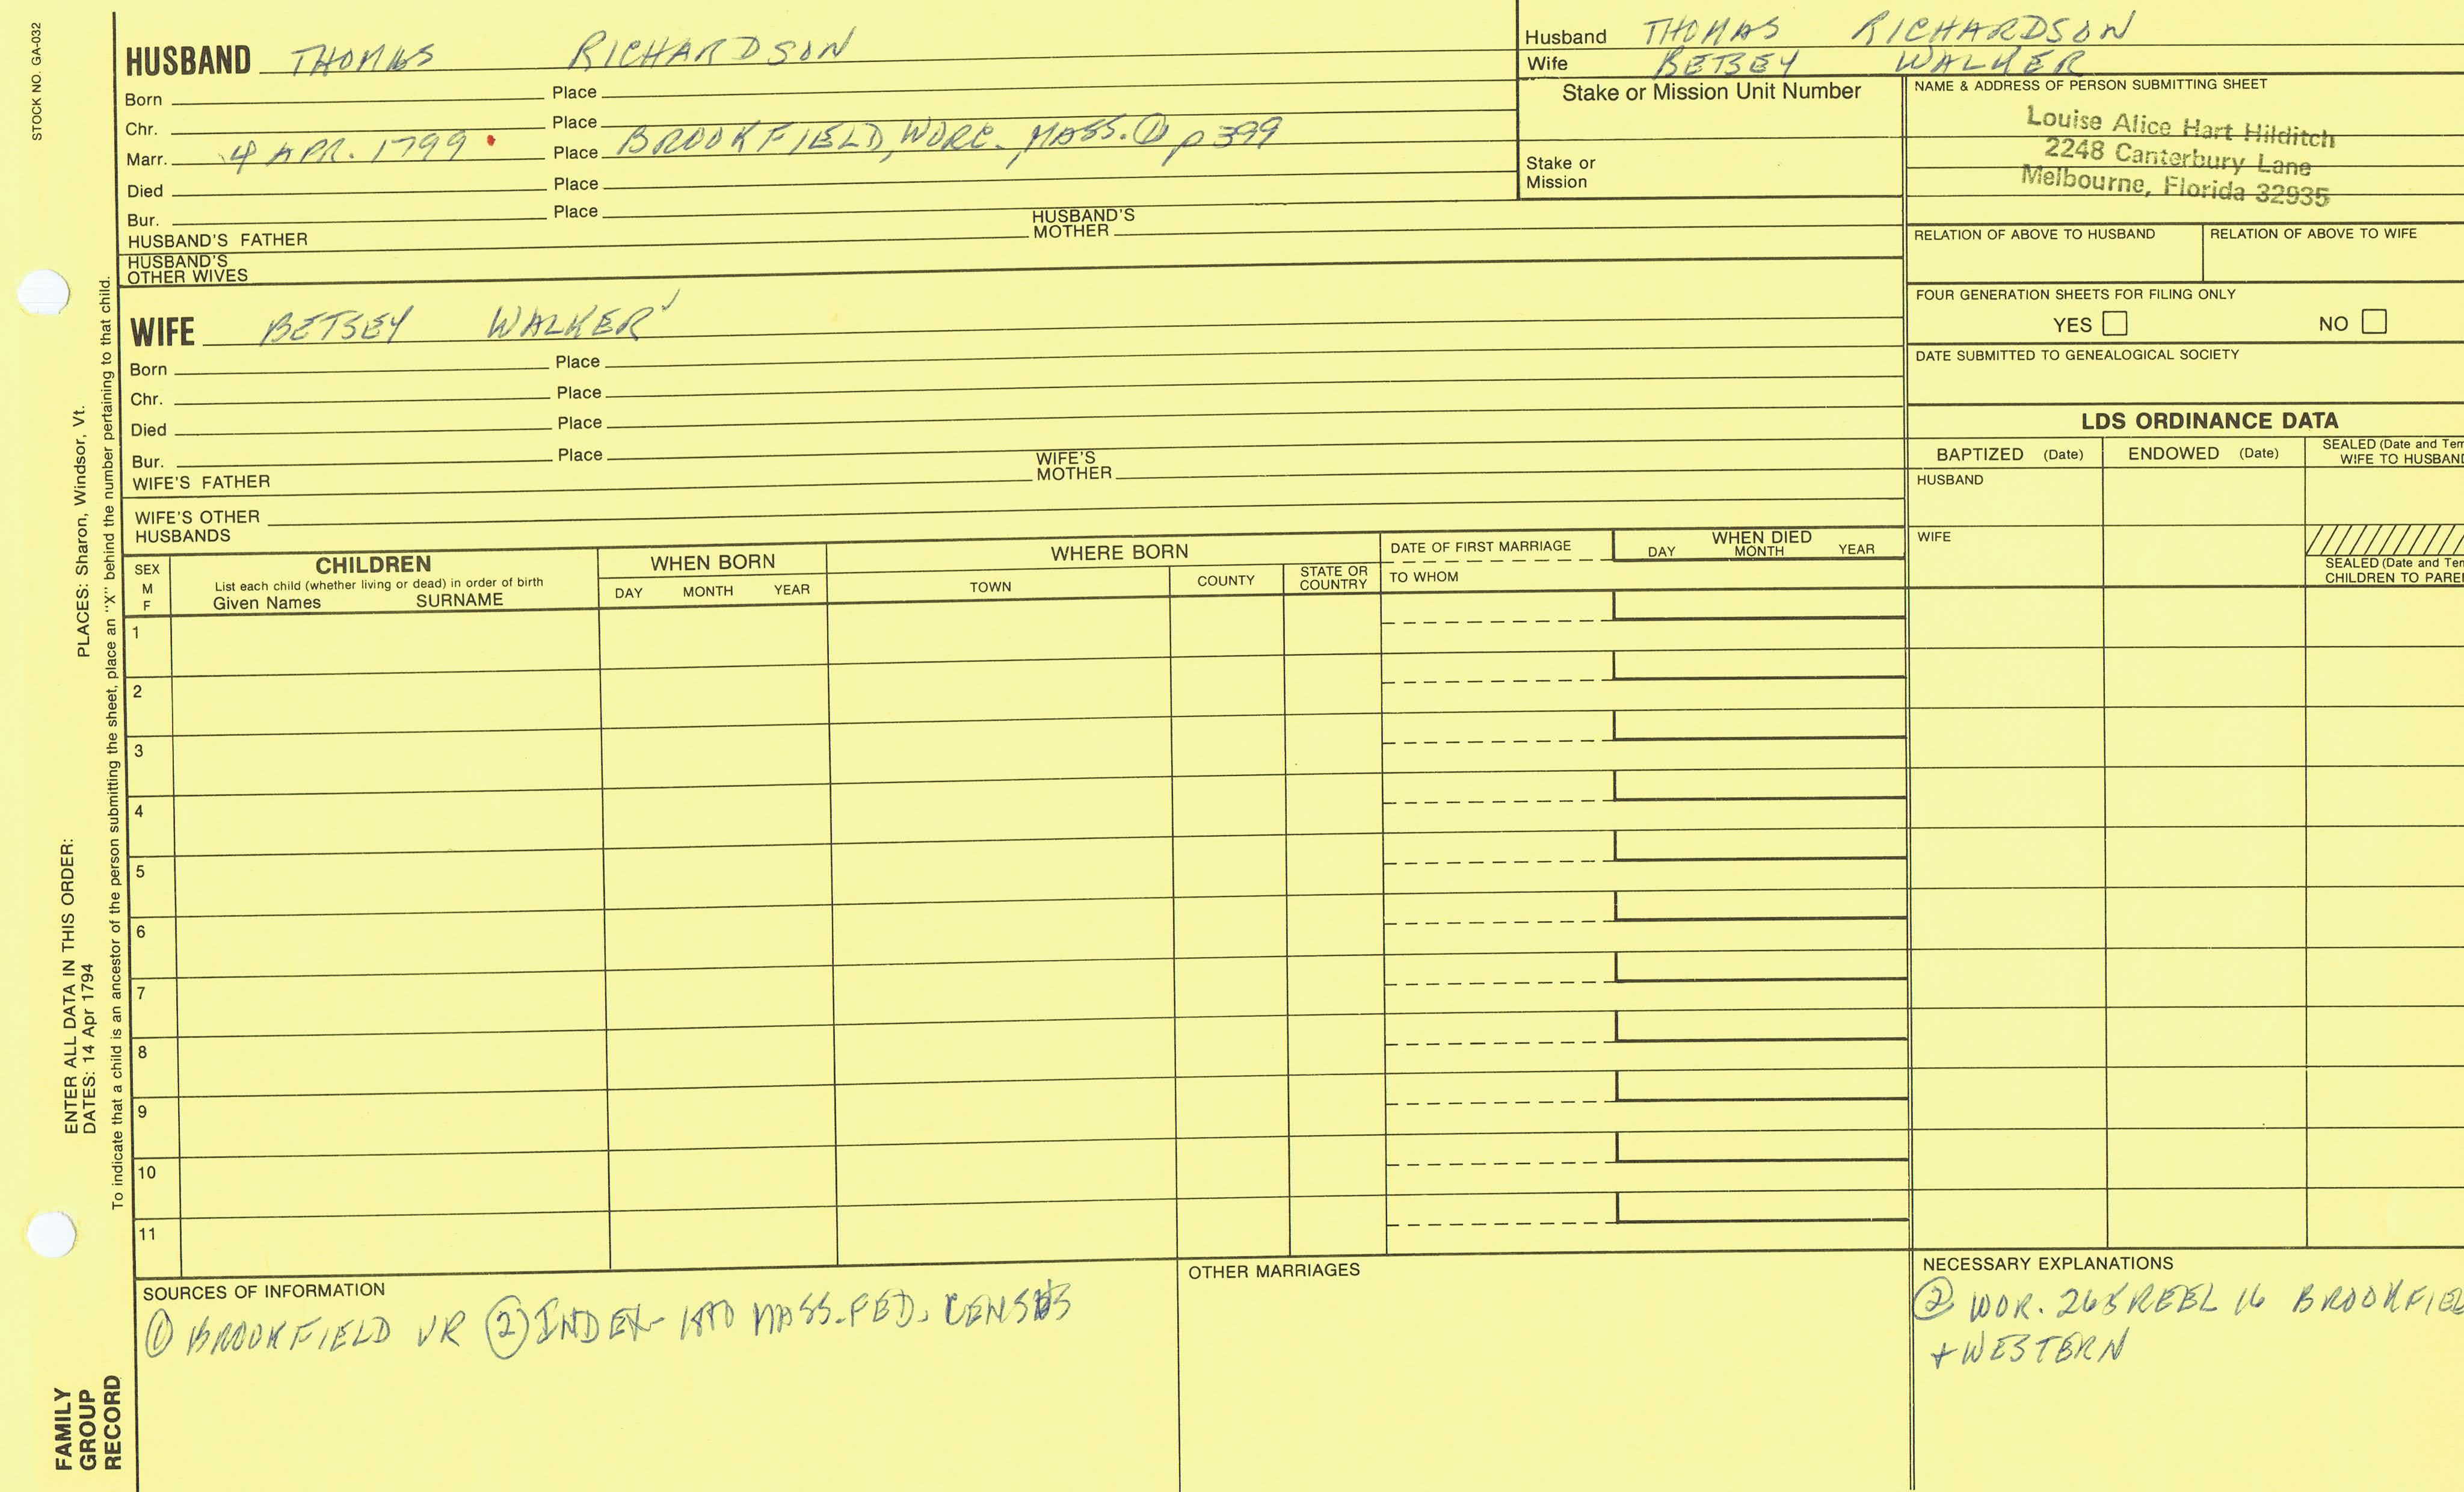 STOCK NO. GA-032
HUSBAND THOMAS RICHARDSON
Born Place
Chr. Place
Marr. 4 APR. 1799 Place BROOKFIELD, WORC. MASS. ① p 399
Died Place
Bur. Place
HUSBAND'S FATHER HUSBAND'S MOTHER
HUSBAND'S
OTHER WIVES
Husband THOMAS RICHARDSON
Wife BETSEY WALKER
Stake or Mission Unit Number
Stake or
Mission
NAME & ADDRESS OF PERSON SUBMITTING SHEET
Louise Alice Hart Hilditch
2248 Canterbury Lane
Melbourne, Florida 32935
RELATION OF ABOVE TO HUSBAND RELATION OF ABOVE TO WIFE
FOUR GENERATION SHEETS FOR FILING ONLY
YES NO
DATE SUBMITTED TO GENEALOGICAL SOCIETY
WIFE BETSEY WALKER
Born Place
Chr. Place
Died Place
Bur. Place
WIFE'S FATHER WIFE'S MOTHER
WIFE'S OTHER
HUSBANDS
LDS ORDINANCE DATA
BAPTIZED (Date) ENDOWED (Date) SEALED (Date and Tem
WIFE TO HUSBAND
HUSBAND
WIFE
SEALED (Date and Tem
CHILDREN TO PARE
SEX
M
F
CHILDREN
List each child (whether living or dead) in order of birth
Given Names SURNAME
WHEN BORN
DAY MONTH YEAR
WHERE BORN
TOWN COUNTY STATE OR COUNTRY
DATE OF FIRST MARRIAGE
TO WHOM
WHEN DIED
DAY MONTH YEAR
1
2
3
4
5
6
7
8
9
10
11
SOURCES OF INFORMATION
① BROOKFIELD VR ② INDEX- MASS. FED. CENSUS
OTHER MARRIAGES
NECESSARY EXPLANATIONS
② WOR. REEL 16 BROOKFIEL
+ WESTERN
ENTER ALL DATA IN THIS ORDER:
DATES: 14 Apr 1794 PLACES: Sharon, Windsor, Vt.
To indicate that a child is an ancestor of the person submitting the sheet, place an "X" behind the number pertaining to that child.
FAMILY
GROUP
RECORD